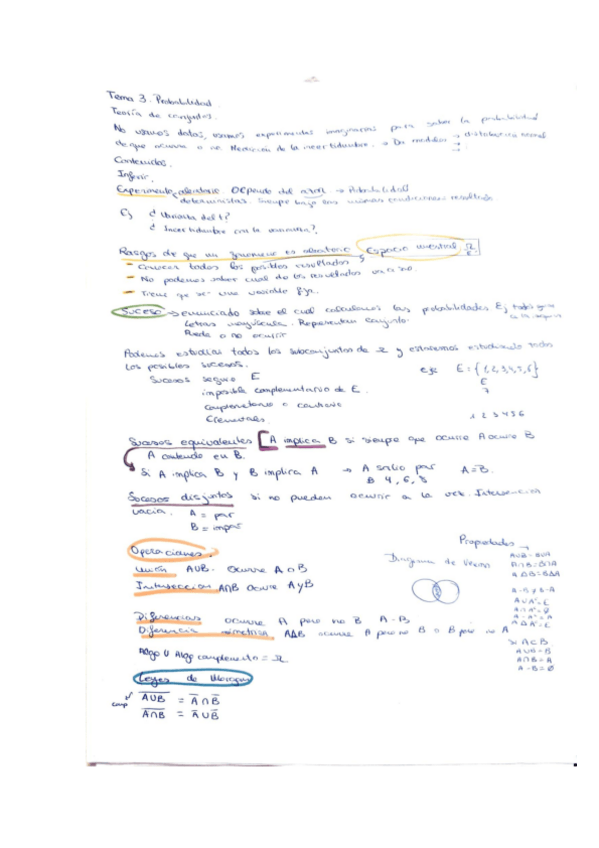 Tema 3. Probabilidad.
Teoría de conjuntos.
No usamos datos, usamos experimentos imaginarios para saber la probabilidad
de que ocurra o no. Medición de la incertidumbre. → Da medidas →
Contenidos.
Inferir.
Experimento aleatorio. Depende del azar → Probabilidad
deterministas. Siempre bajo las mismas resultado
Ej ¿ Varianza del t?
¿ Incertidumbre con la varianza?
Rasgos de que un fenómeno es aleatorio. Espacio muestral Ω E
- Conocer todos los posibles resultados
- No podemos saber cual de los resultados va a ser
- Tiene que ser una variable fija.
Suceso → enunciado sobre el cual calculamos las probabilidades E,
Letras mayúscula. Representan conjunto.
Puede o no ocurrir
Podemos estudiar todos los subconjuntos de Ω y estaremos estudiando todos
los posibles sucesos.
ejz E = {1,2,3,4,5,6}
Sucesos seguro E
E
imposible complementario de E.
7
complementario o contrario
Elementales.
1 2 3 4 5 6
Sucesos equivalentes A implica B si siempre que ocurre A ocurre B
A contenido en B.
Si A implica B y B implica A → A salio par A=B.
B 4, 6, 8
Sucesos disjuntos si no pueden ocurrir a la vez. Intersección
vacía. A = par
B = impar
Operaciones.
Unión AUB. Ocurre A o B
Intersección A∩B ocurre A y B
Diagrama de Venn
Propiedades
AUB = BUA
A∩B = B∩A
A∆B = B∆A
A-B ≠ B-A
AUA' = E
A∩A' = Ø
A-A' = A
A∆A' = E
Si A⊂B
AUB = B
A∩B = A
A-B = Ø
Diferencias ocurre A pero no B A-B
Diferencia simétrica A∆B ocurre A pero no B o B pero no A
Algo U Algo complemento = Ω
Leyes de Morgan
comp
A̅U̅B̅ = A̅ ∩ B̅
A̅∩̅B̅ = A̅ U B̅